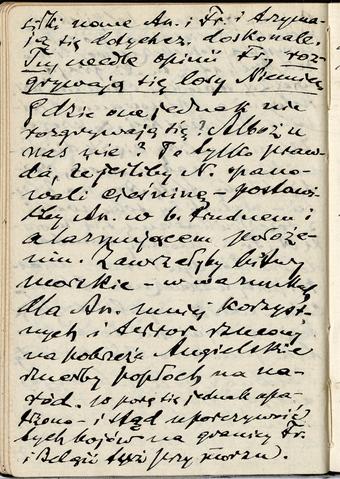 siłki nowe An. i Fr. i trzyma-
ją się dotychcz. doskonale.
Tu, wedle opinii Fr., roz-
grywają się losy Niemiec.
Gdzie one jednak nie
rozgrywają się? Alboż u
nas nie? To tylko praw-
da, że jeśliby N. opano-
wali cieśninę – postawi-
liby An. w b. trudnem i
alarmującem położe-
niu. Zawrzałyby bitwy
morskie – w warunkach
dla An. mniej korzyst-
nych i terror rzucony
na pobrzeża Angielskie
rzuciłby popłoch na na-
ród. W porę się jednak opa-
trzono – i stąd uporczywość
tych bojów na granicy Fr.
i Belgii tuż przy morzu.